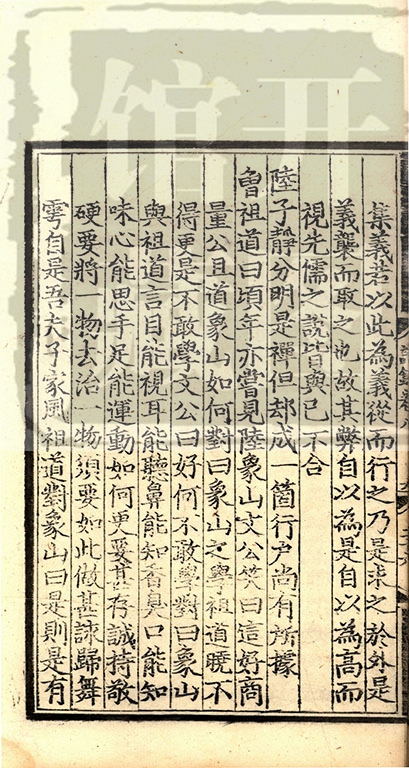 集義若以此為義從而行之乃是求之於外是
義襲而取之也故其弊自以為是自以為高而
視先儒之說皆與己不合
陸子靜分明是禪但却成一箇行户尚有所據
魯祖道曰頃年亦嘗見陸象山文公笑曰這好商
量公且道象山如何對曰象山之學祖道曉不
得更是不敢學文公曰好何不敢學對曰象山
與祖道言目能視耳能聽鼻能知香臭口能知
味心能思手足能運動如何更要甚存誠持敬
硬要將一物去治一物須要如此做甚詠歸舞
雩自是吾夫子家風祖道對象山曰是則是有